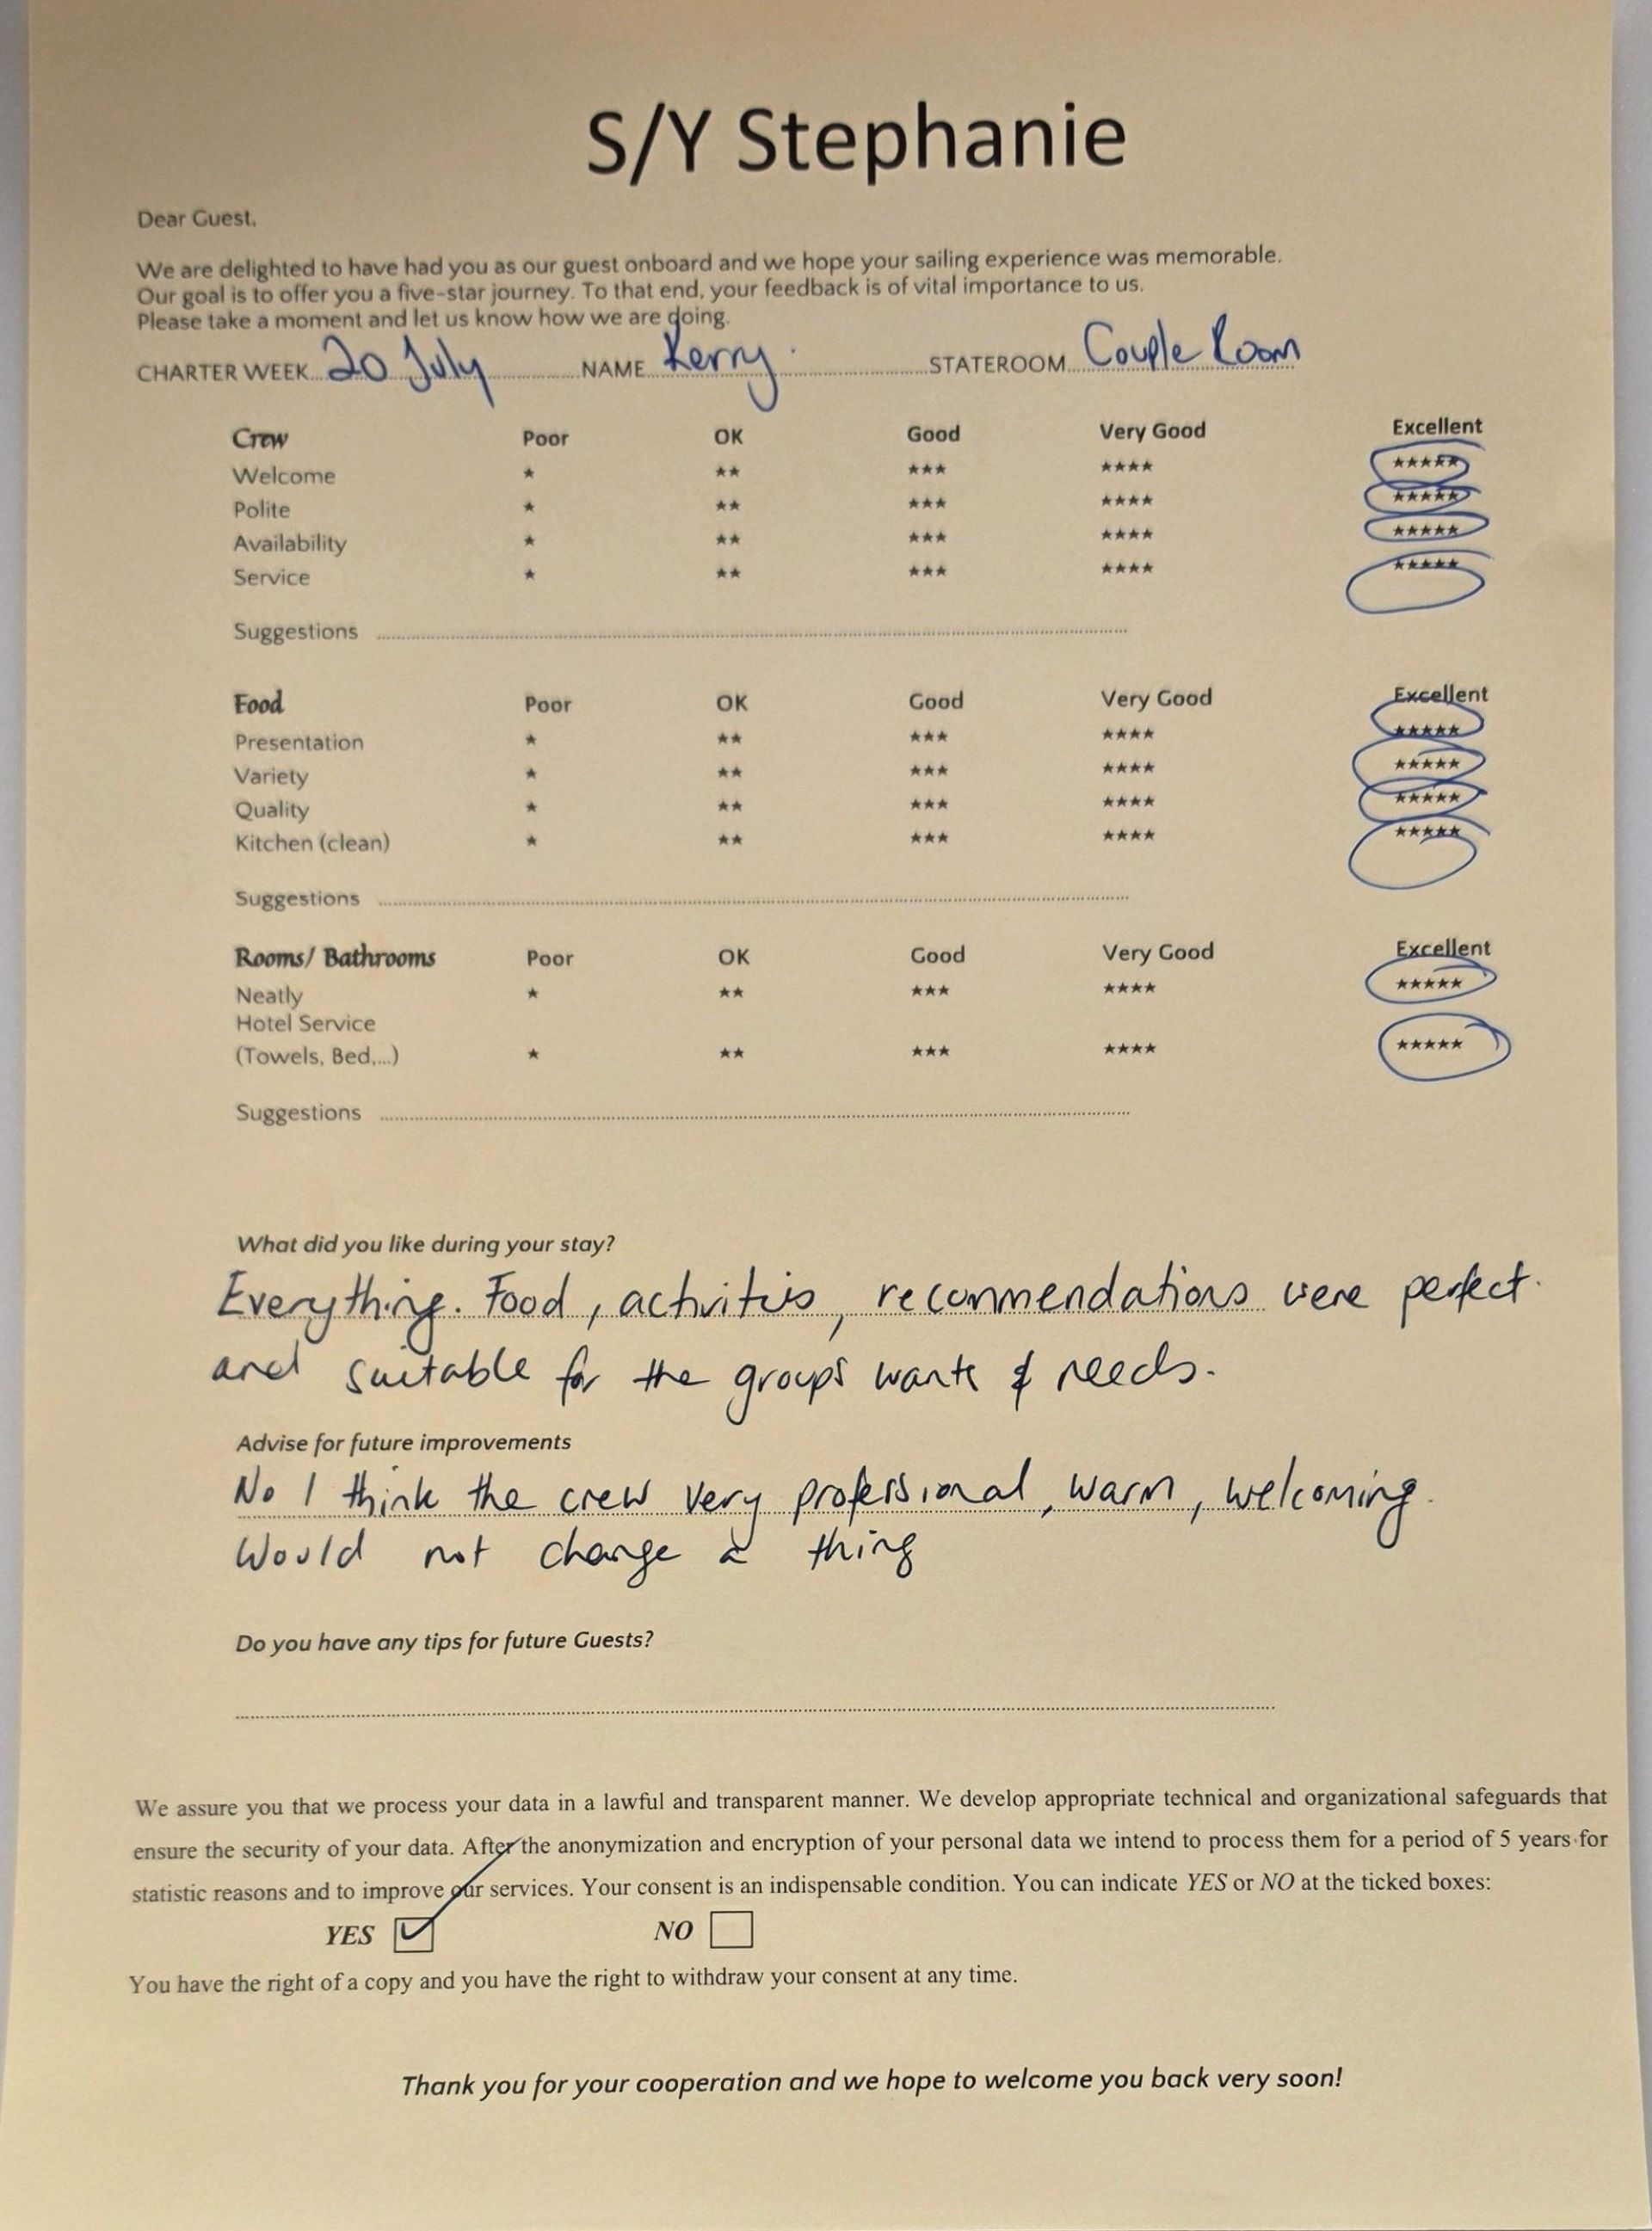 S/Y Stephanie
Dear Guest,
We are delighted to have had you as our guest onboard and we hope your sailing experience was memorable.
Our goal is to offer you a five-star journey. To that end, your feedback is of vital importance to us.
Please take a moment and let us know how we are doing.
CHARTER WEEK 20 July NAME Kerry STATEROOM Couple Room
Crew Poor OK Good Very Good Excellent
Welcome ★ ★★ ★★★ ★★★★ ★★★★★
Polite ★ ★★ ★★★ ★★★★ ★★★★★
Availability ★ ★★ ★★★ ★★★★ ★★★★★
Service ★ ★★ ★★★ ★★★★ ★★★★★
Suggestions
Food Poor OK Good Very Good Excellent
Presentation ★ ★★ ★★★ ★★★★ ★★★★★
Variety ★ ★★ ★★★ ★★★★ ★★★★★
Quality ★ ★★ ★★★ ★★★★ ★★★★★
Kitchen (clean) ★ ★★ ★★★ ★★★★ ★★★★★
Suggestions
Rooms/ Bathrooms Poor OK Good Very Good Excellent
Neatly ★ ★★ ★★★ ★★★★ ★★★★★
Hotel Service
(Towels, Bed,...) ★ ★★ ★★★ ★★★★ ★★★★★
Suggestions
What did you like during your stay?
Everything. Food, activities, recommendations were perfect.
and suitable for the groups wants & needs.
Advise for future improvements
No I think the crew very professional, warm, welcoming.
Would not change a thing
Do you have any tips for future Guests?
We assure you that we process your data in a lawful and transparent manner. We develop appropriate technical and organizational safeguards that
ensure the security of your data. After the anonymization and encryption of your personal data we intend to process them for a period of 5 years for
statistic reasons and to improve our services. Your consent is an indispensable condition. You can indicate YES or NO at the ticked boxes:
YES ☑ NO ☐
You have the right of a copy and you have the right to withdraw your consent at any time.
Thank you for your cooperation and we hope to welcome you back very soon!